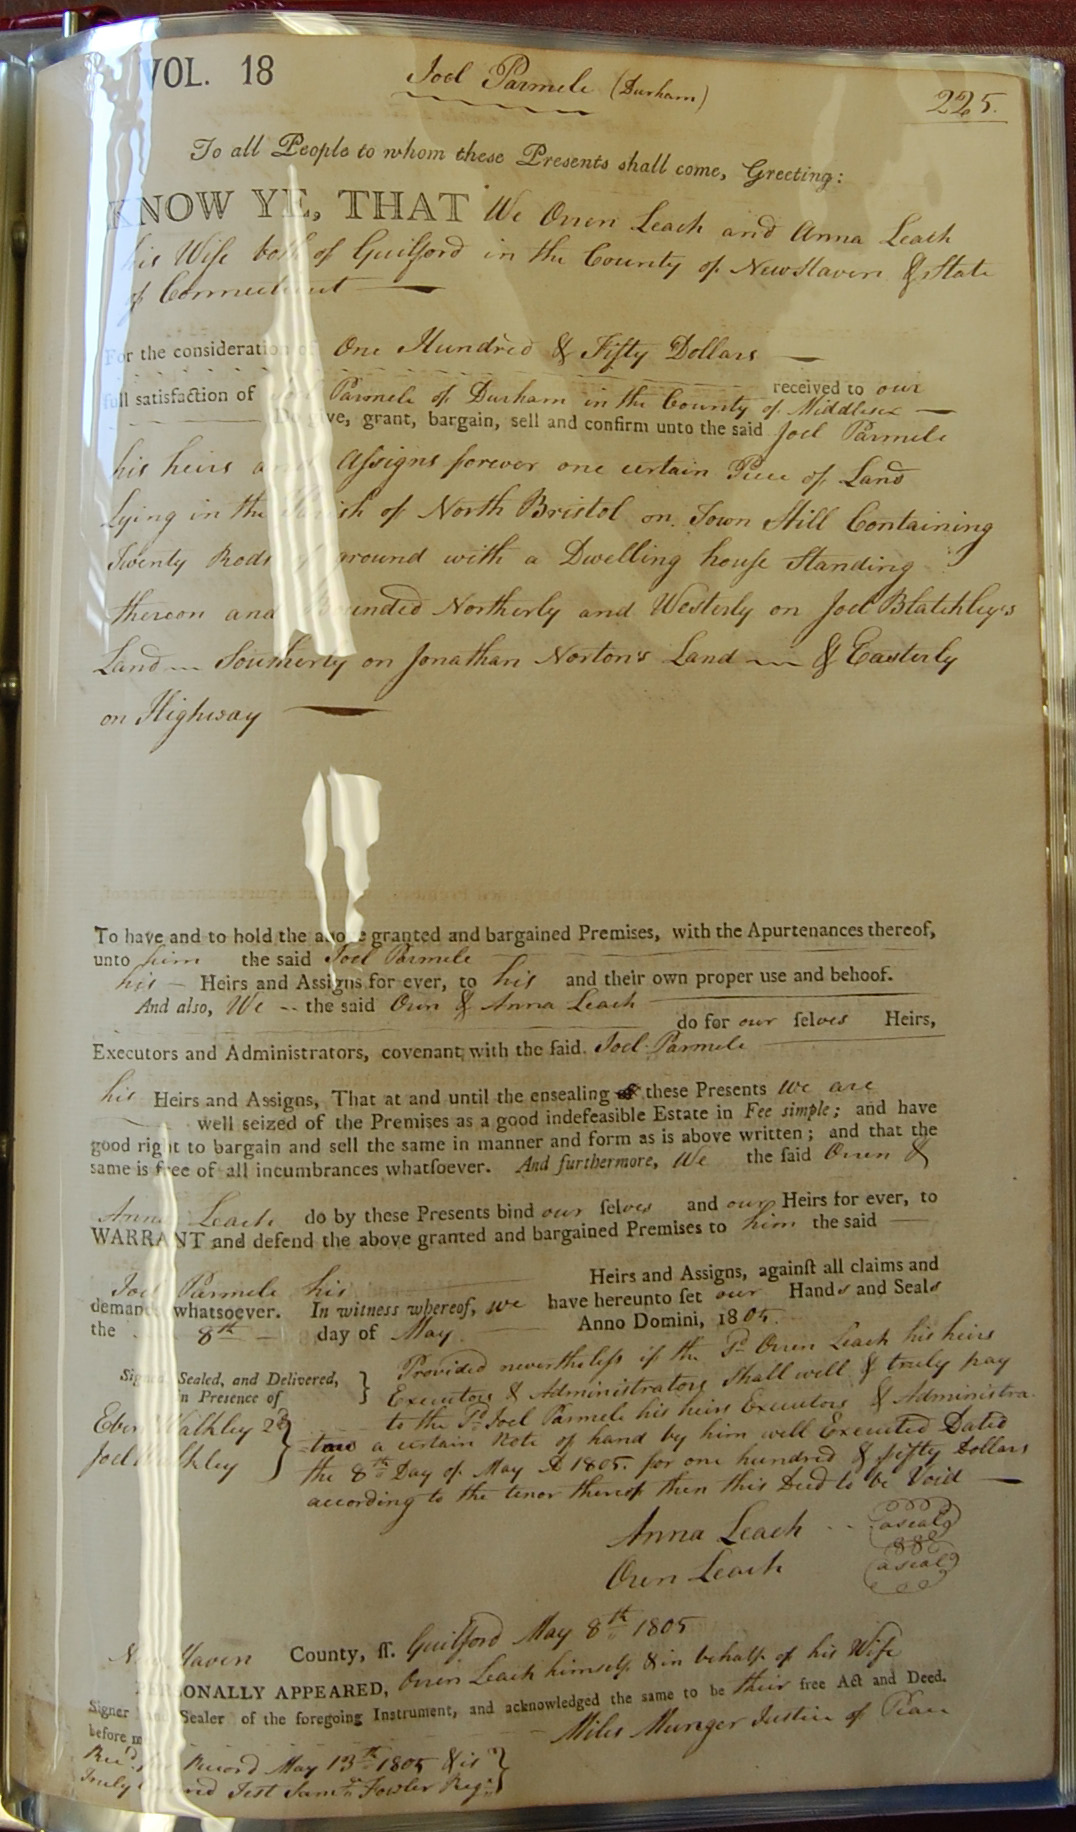 VOL. 18
Joel Parmele (Durham)
225.
To all People to whom these Presents shall come, Greeting:
KNOW YE, THAT We Oren Leach and Anna Leach
his Wife both of Guilford in the County of New Haven & State
of Connecticut
For the consideration of One Hundred & Fifty Dollars
received to our
full satisfaction of Parmele of Durham in the County of Middlesex
Do give, grant, bargain, sell and confirm unto the said Joel Parmele
his heirs and Assigns forever one certain Piece of Land
Lying in the Parish of North Bristol on Town Hill Containing
Twenty Rods of ground with a Dwelling house Standing
thereon and Bounded Northerly and Westerly on Joel Blatchley's
Land Southerly on Jonathan Norton's Land & Easterly
on Highway
To have and to hold the above granted and bargained Premises, with the Apurtenances thereof,
unto him the said Joel Parmele
his Heirs and Assigns for ever, to his and their own proper use and behoof.
And also, We the said Oren & Anna Leach
do for our selves Heirs,
Executors and Administrators, covenant with the said. Joel Parmele
his Heirs and Assigns, That at and until the ensealing of these Presents we are
well seized of the Premises as a good indefeasible Estate in Fee simple; and have
good right to bargain and sell the same in manner and form as is above written; and that the
same is free of all incumbrances whatsoever. And furthermore, We the said Oren &
Anna Leach do by these Presents bind our selves and our Heirs for ever, to
WARRANT and defend the above granted and bargained Premises to him the said
Joel Parmele his Heirs and Assigns, against all claims and
demands whatsoever. In witness whereof, we have hereunto set our Hands and Seals
the 8th day of May Anno Domini, 1805.
Provided nevertheless if the sd Oren Leach his heirs
Signed, Sealed, and Delivered,
in Presence of
Executors & Administrators Shall well & truly pay
to the sd Joel Parmele his heirs Executors & Administra
Eben Walkley 2d
tors a certain Note of hand by him well Executed Dated
Joel Walkley
the 8th Day of May AD 1805. for one hundred & fifty Dollars
according to the tenor thereof then this Deed to be Void
Anna Leach a seal
Oren Leach a seal
New Haven County, ss. Guilford May 8th 1805
PERSONALLY APPEARED, Oren Leach himself & in behalf of his Wife
Signer and Sealer of the foregoing Instrument, and acknowledged the same to be their free Act and Deed.
before me Miles Munger Justice of Peace
Rec'd for Record May 13th 1805 & is
Truly Entered Test Saml Fowler Regr